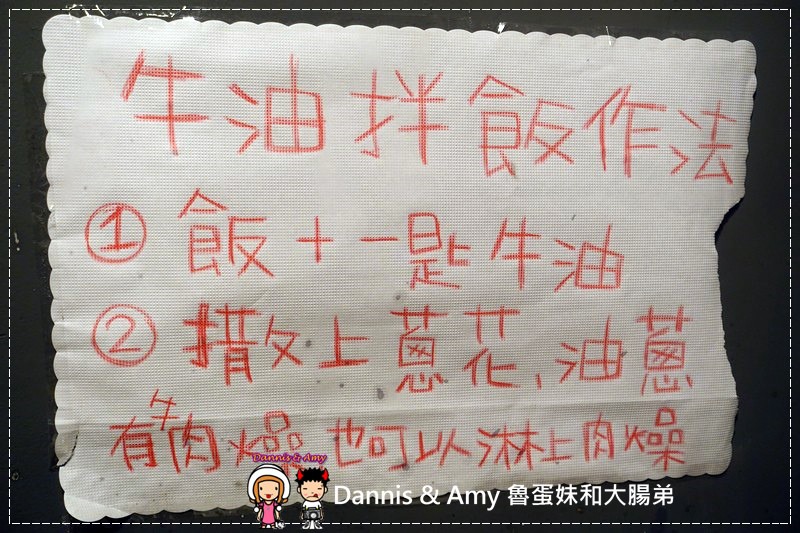 牛油拌飯作法
① 飯+一匙牛油
② 撒上蔥花、油蔥
有牛肉燥也可以淋上肉燥
Dannis & Amy
Dannis & Amy 魯蛋妹和大腸弟